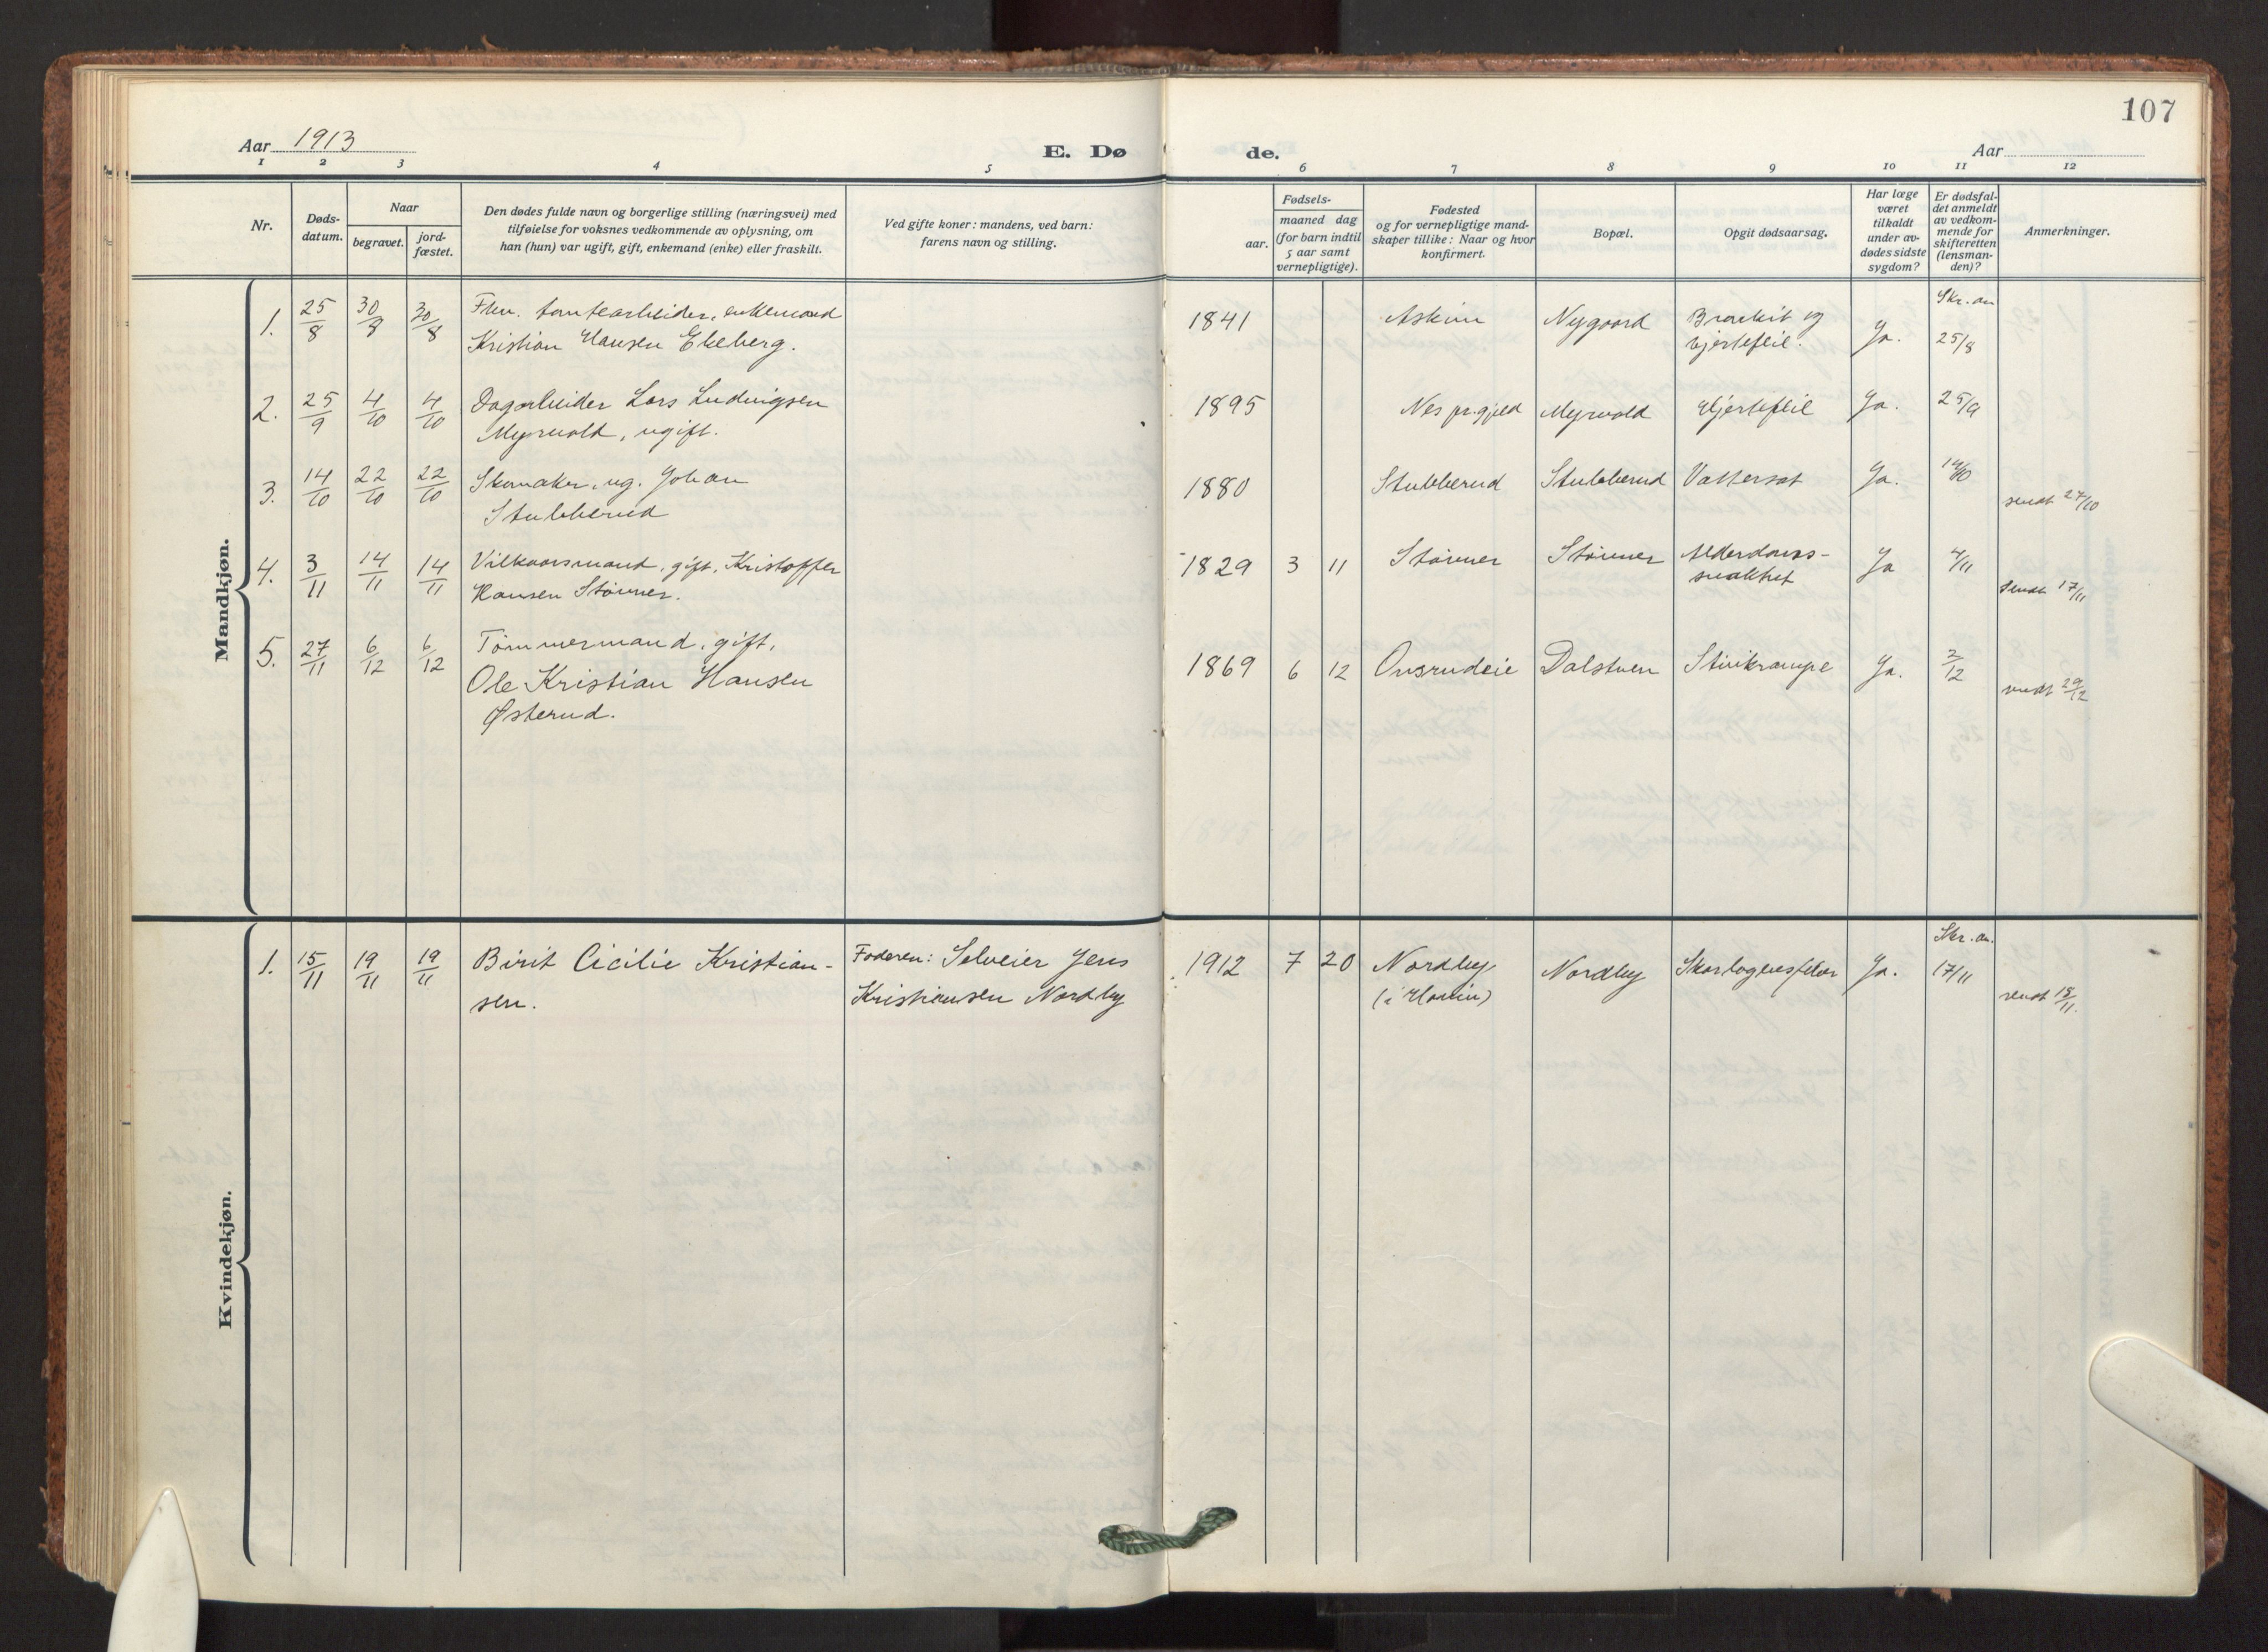 107
Aar 1913
E. Dø
de.
Aar
1 2 3 4 5 6 7 8 9 10 11 12
Nr.
Døds-
datum.
Naar
begravet.
jord-
fæstet.
Den dødes fulde navn og borgerlige stilling (næringsvei) med
tilføielse for voksnes vedkommende av oplysning, om
han (hun) var ugift, gift, enkemand (enke) eller fraskilt.
Ved gifte koner: mandens, ved barn:
farens navn og stilling.
Fødsels-
aar.
maaned dag
(for barn indtil
5 aar samt
vernepligtige).
Fødested
og for vernepligtige mand-
skaper tillike: Naar og hvor
konfirmert.
Bopæl.
Opgit dødsaarsag.
Har læge
været
tilkaldt
under av-
dødes sidste
sygdom?
Er dødsfal-
det anmeldt
av vedkom-
mende for
skifteretten
(lensman-
den)?
Anmerkninger.
Mandkjøn.
1. 25/8 30/8 30/8 tomtearbeider, enkemand
Kristian Hansen Ekeberg.
1841 Askim Nygaard
og
hjertefeil. Ja. Skr. an
25/8
2. 25/9 4/10 4/10 Dagarbeider Lars Ludvigsen
Myrvold, ugift.
1895 Nes pr.gjeld Myrvold Hjertefeil Ja. 25/9
3. 14/10 22/10 22/10 Skomaker, ug. Johan
Stubberud
1880 Stubberud Stubberud Vattersot Ja. 14/10 sendt 27/10
4. 3/11 14/11 14/11 Vilkaarsmand, gift, Kristoffer
Hansen Størmer.
1829 3 11 Størmer Størmer Alderdoms-
svakhet Ja 4/11 sendt 17/11
5. 27/11 6/12 6/12 Tømmermand, gift,
Ole Kristian Hansen
Østerud.
1869 6 12 Onsrudeie Dalstuen Stivkrampe Ja. 2/12 sendt 29/12
Kvindekjøn.
1. 15/11 19/11 19/11 Birit Cicilie Kristian-
sen.
Faderen: Selveier Jens
Kristiansen Nordby
1912 7 20 Nordby
(i Hovin) Nordby Skarlagensfeber Ja. Skr. an.
17/11 sendt 18/11.